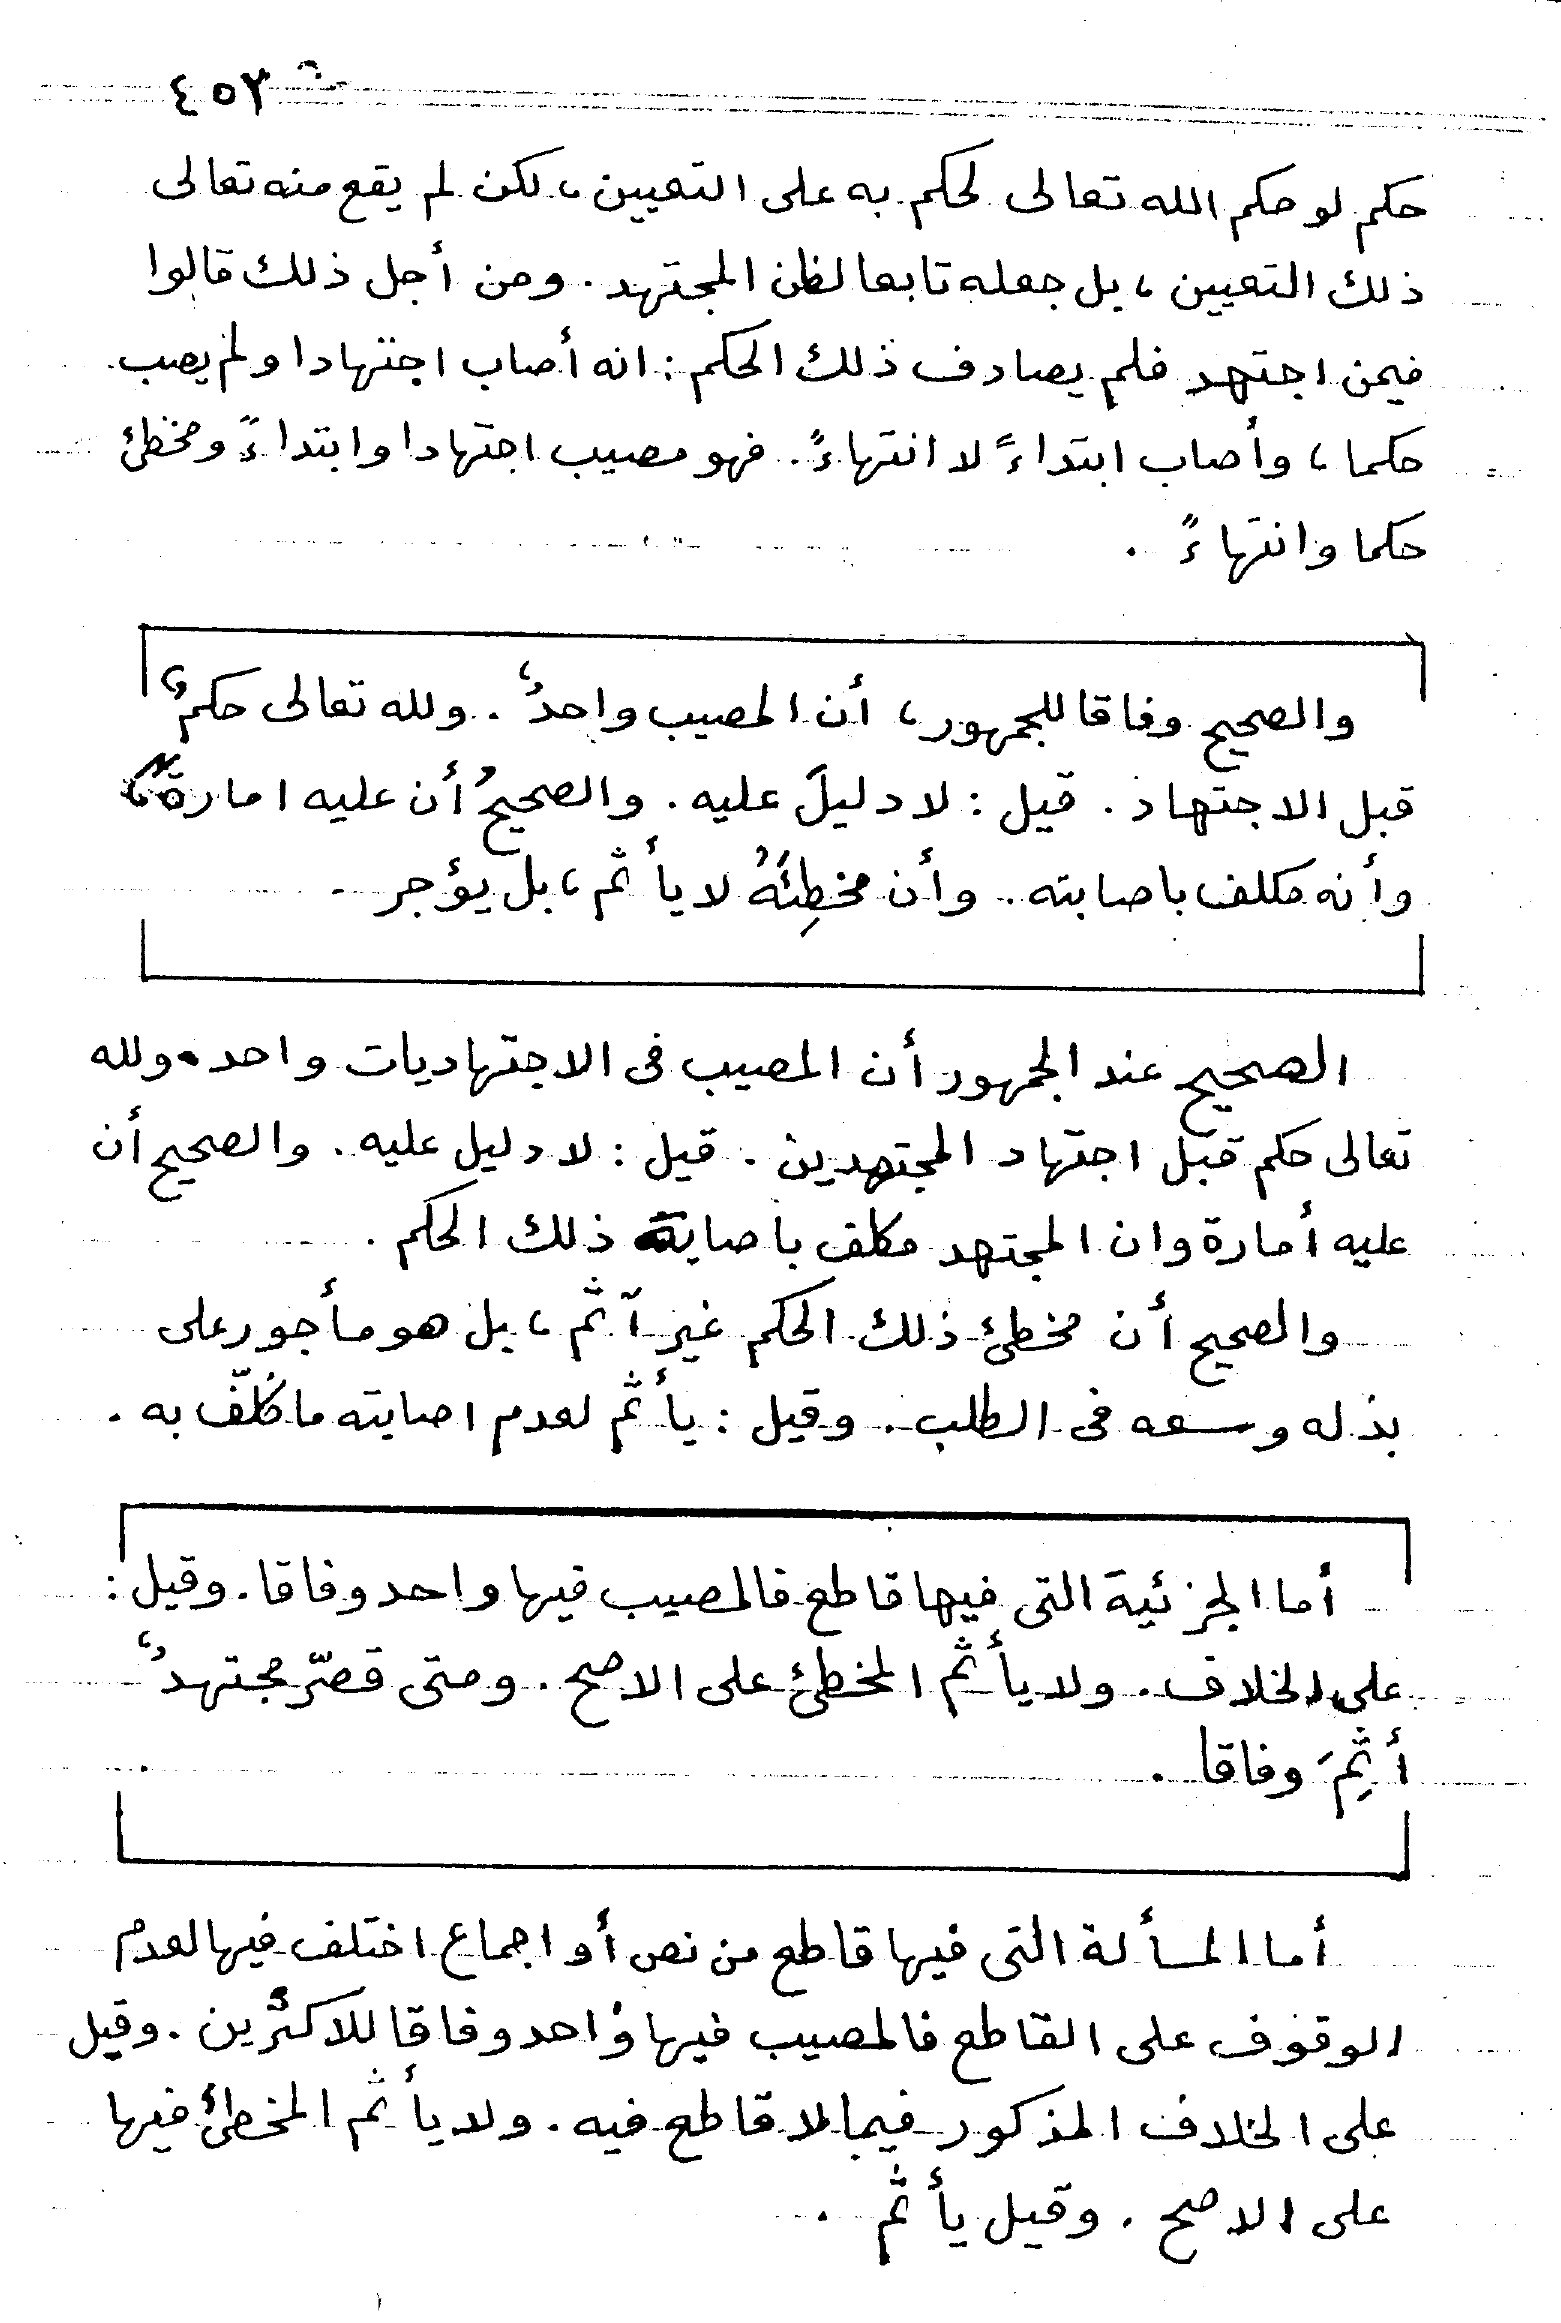 ٤٥٢
حكم لو حكم الله تعالى لحكم به على التعيين، لكن لم يقع منه تعالى
ذلك التعيين، بل جعله تابعا لظن المجتهد. ومن أجل ذلك قالوا
فيمن اجتهد فلم يصادف ذلك الحكم: انه أصاب اجتهادا ولم يصب
حكما، وأصاب ابتداءً لا انتهاءً. فهو مصيب اجتهادا وابتداءً ومخطئ
حكما وانتهاءً.
والصحيح وفاقا للجمهور، أن المصيب واحدٌ. ولله تعالى حكمٌ
قبل الاجتهاد. قيل: لا دليلَ عليه. والصحيحُ أن عليه امارةً،
وأنه مكلف باصابته. وأن مخطِئَهُ لا يأثم، بل يؤجر.
الصحيح عند الجمهور أن المصيب فى الاجتهاديات واحد. ولله
تعالى حكم قبل اجتهاد المجتهدين. قيل: لا دليل عليه. والصحيح أن
عليه أمارة وان المجتهد مكلف باصابة ذلك الحكم.
والصحيح أن مخطئ ذلك الحكم غير آثم، بل هو مأجور على
بذله وسعه فى الطلب. وقيل: يأثم لعدم اصابته ما كُلّف به.
أما الجزئية التى فيها قاطع فالمصيب فيها واحد وفاقا. وقيل:
على الخلاف. ولا يأثم المخطئ على الاصح. ومتى قصّر مجتهدٌ
أثِمَ وفاقا.
أما المسألة التى فيها قاطع من نص أو اجماع اختلف فيها لعدم
الوقوف على القاطع فالمصيب فيها واحد وفاقا للاكثرين. وقيل
على الخلاف المذكور فيما لا قاطع فيه. ولا يأثم المخطئ فيها
على الاصح. وقيل يأثم.